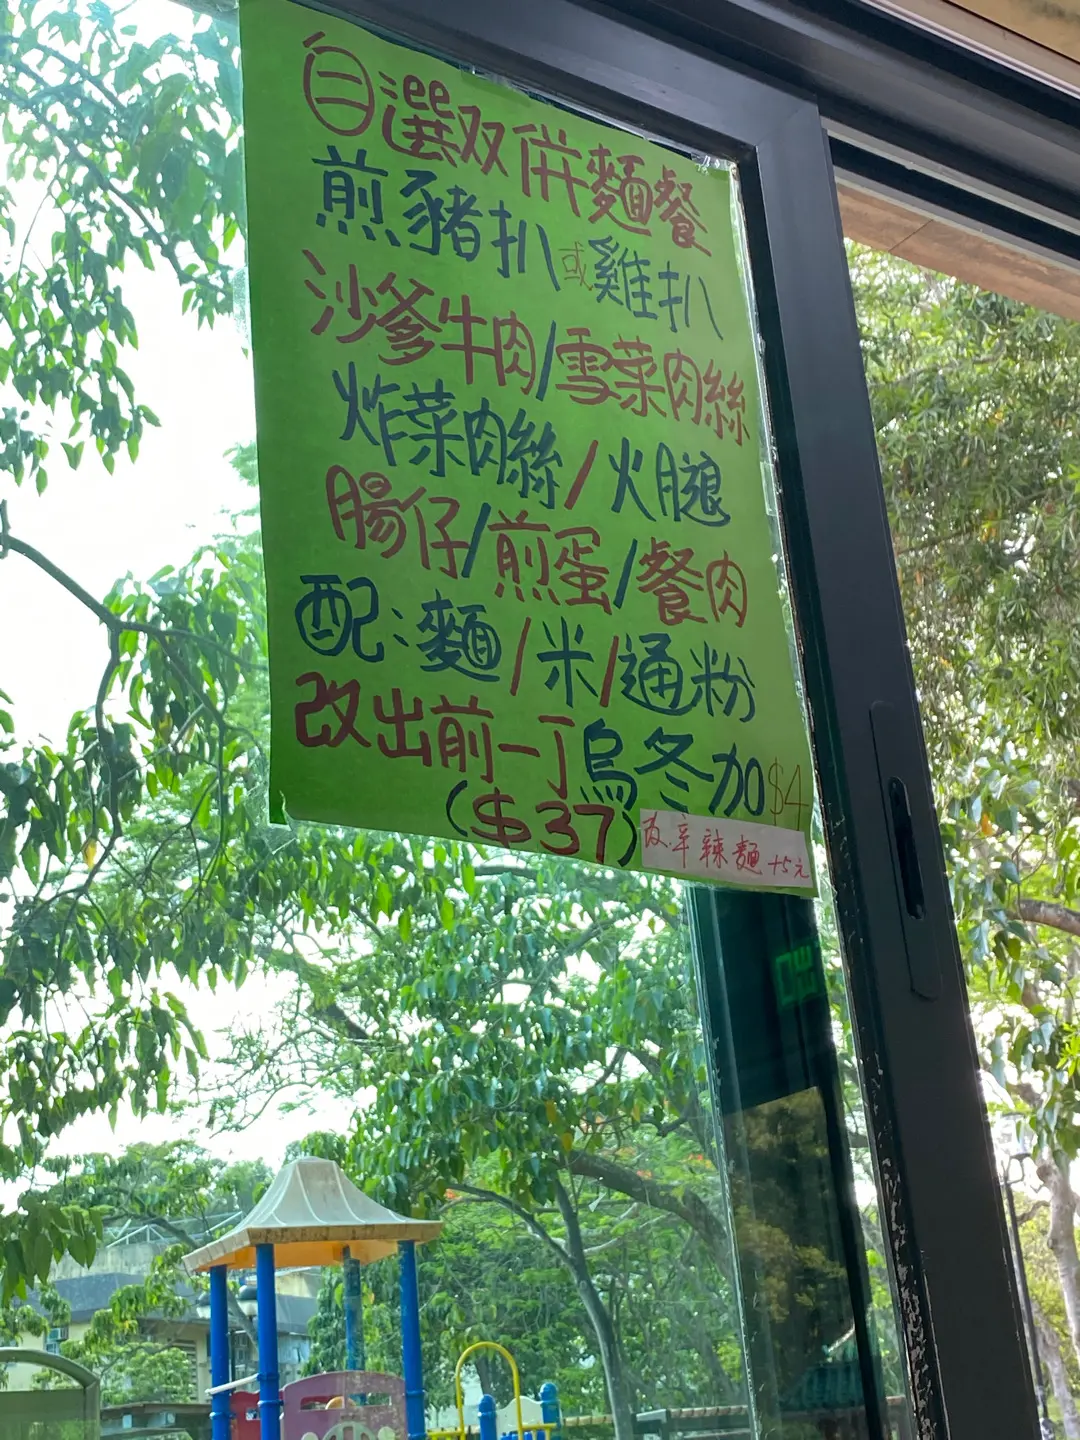 自選双併麵餐
煎豬扒或雞扒
沙爹牛肉/雪菜肉絲
炸菜肉絲/火腿
腸仔/煎蛋/餐肉
配:麵/米/通粉
改出前一丁烏冬加$4
($37)
改辛辣麵+5元